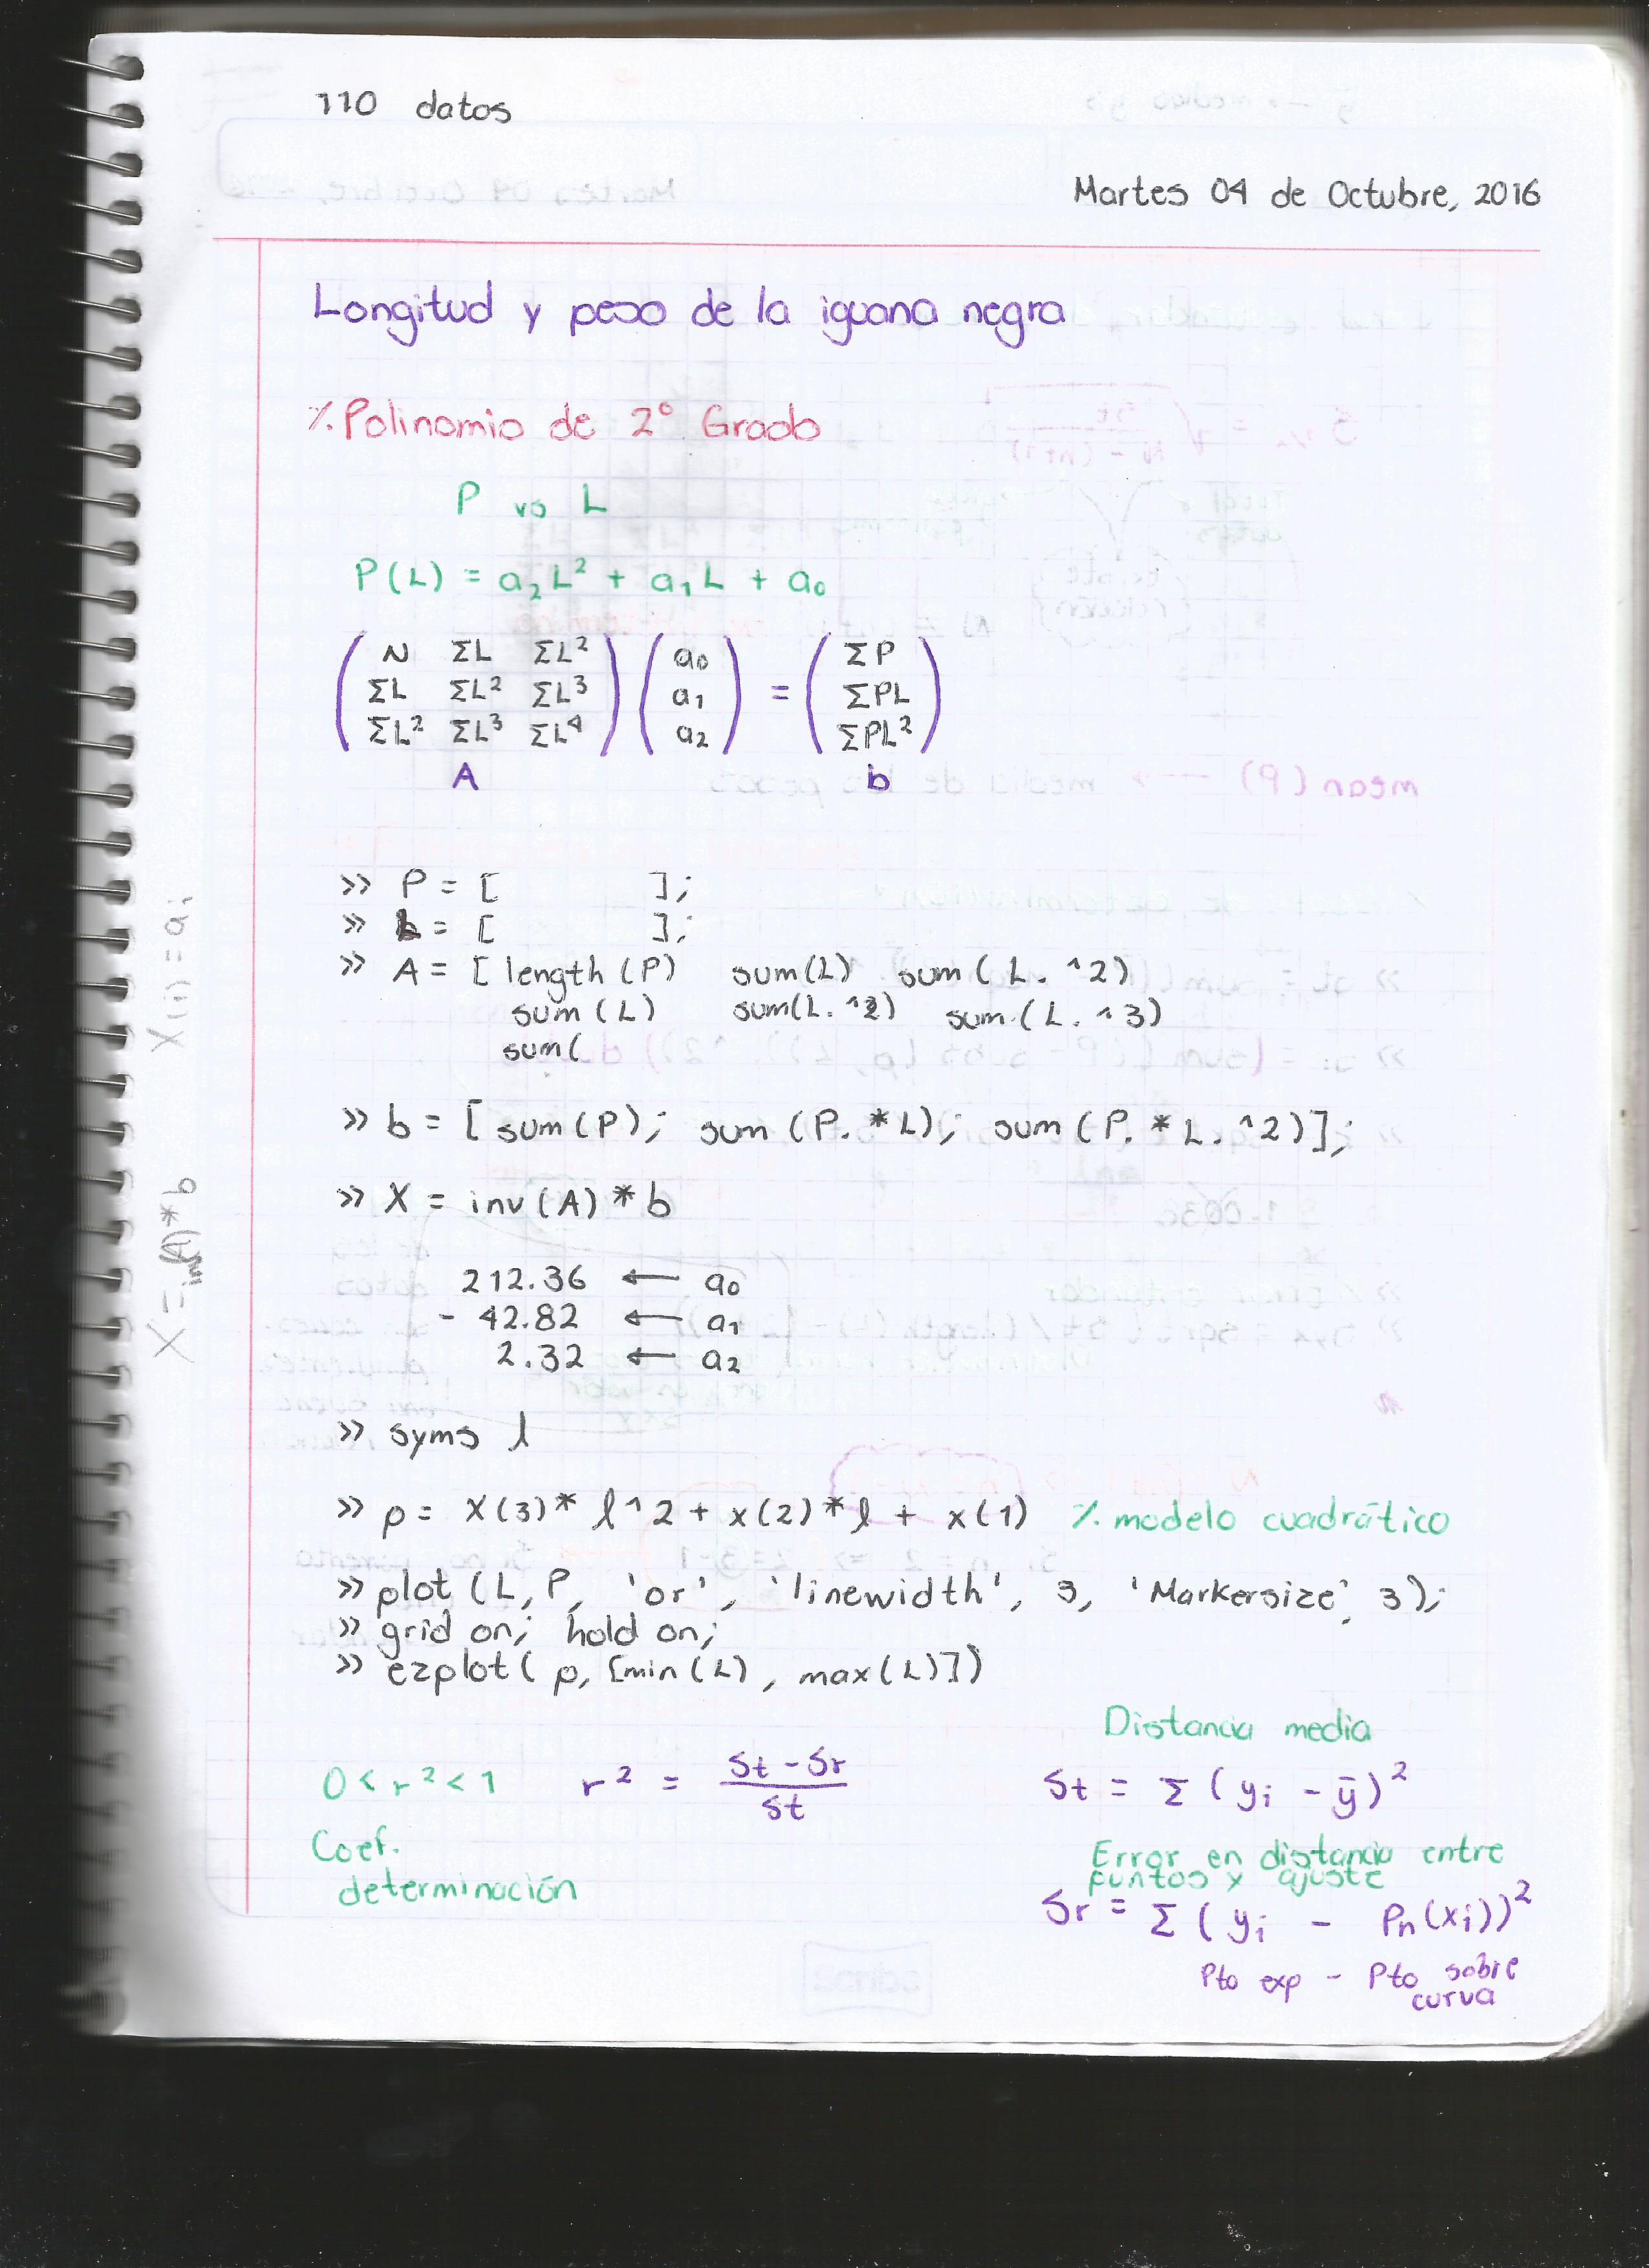 110 datos
Martes 04 de Octubre, 2016
Longitud y peso de la iguana negra
% Polinomio de 2° Grado
P vs L
P(L) = a₂L² + a₁L + a₀
( N ΣL ΣL² ) ( a₀ ) = ( ΣP )
( ΣL ΣL² ΣL³ ) ( a₁ ) ( ΣPL )
( ΣL² ΣL³ ΣL⁴ ) ( a₂ ) ( ΣPL² )
A b
>> P = [ ];
>> L = [ ];
>> A = [ length(P) sum(L) sum(L.^2)
sum(L) sum(L.^2) sum(L.^3)
sum(
>> b = [ sum(P); sum(P.*L); sum(P.*L.^2)];
>> X = inv(A)*b
212.36 ← a₀
- 42.82 ← a₁
2.32 ← a₂
>> syms l
>> p = X(3)* l^2 + x(2)*l + x(1) % modelo cuadrático
>> plot (L, P, 'or', 'linewidth', 3, 'Markersize', 3);
>> grid on; hold on;
>> ezplot( p, [min(L), max(L)])
Distancia media
0 < r² < 1 r² = (St - Sr)/St St = Σ (yᵢ - ȳ)²
Coef.
determinación
Error en distancia entre
puntos x ajuste
Sr = Σ (yᵢ - Pn(xᵢ))²
Pto exp - Pto sobre
curva
X = inv(A)*b X(i) = aᵢ